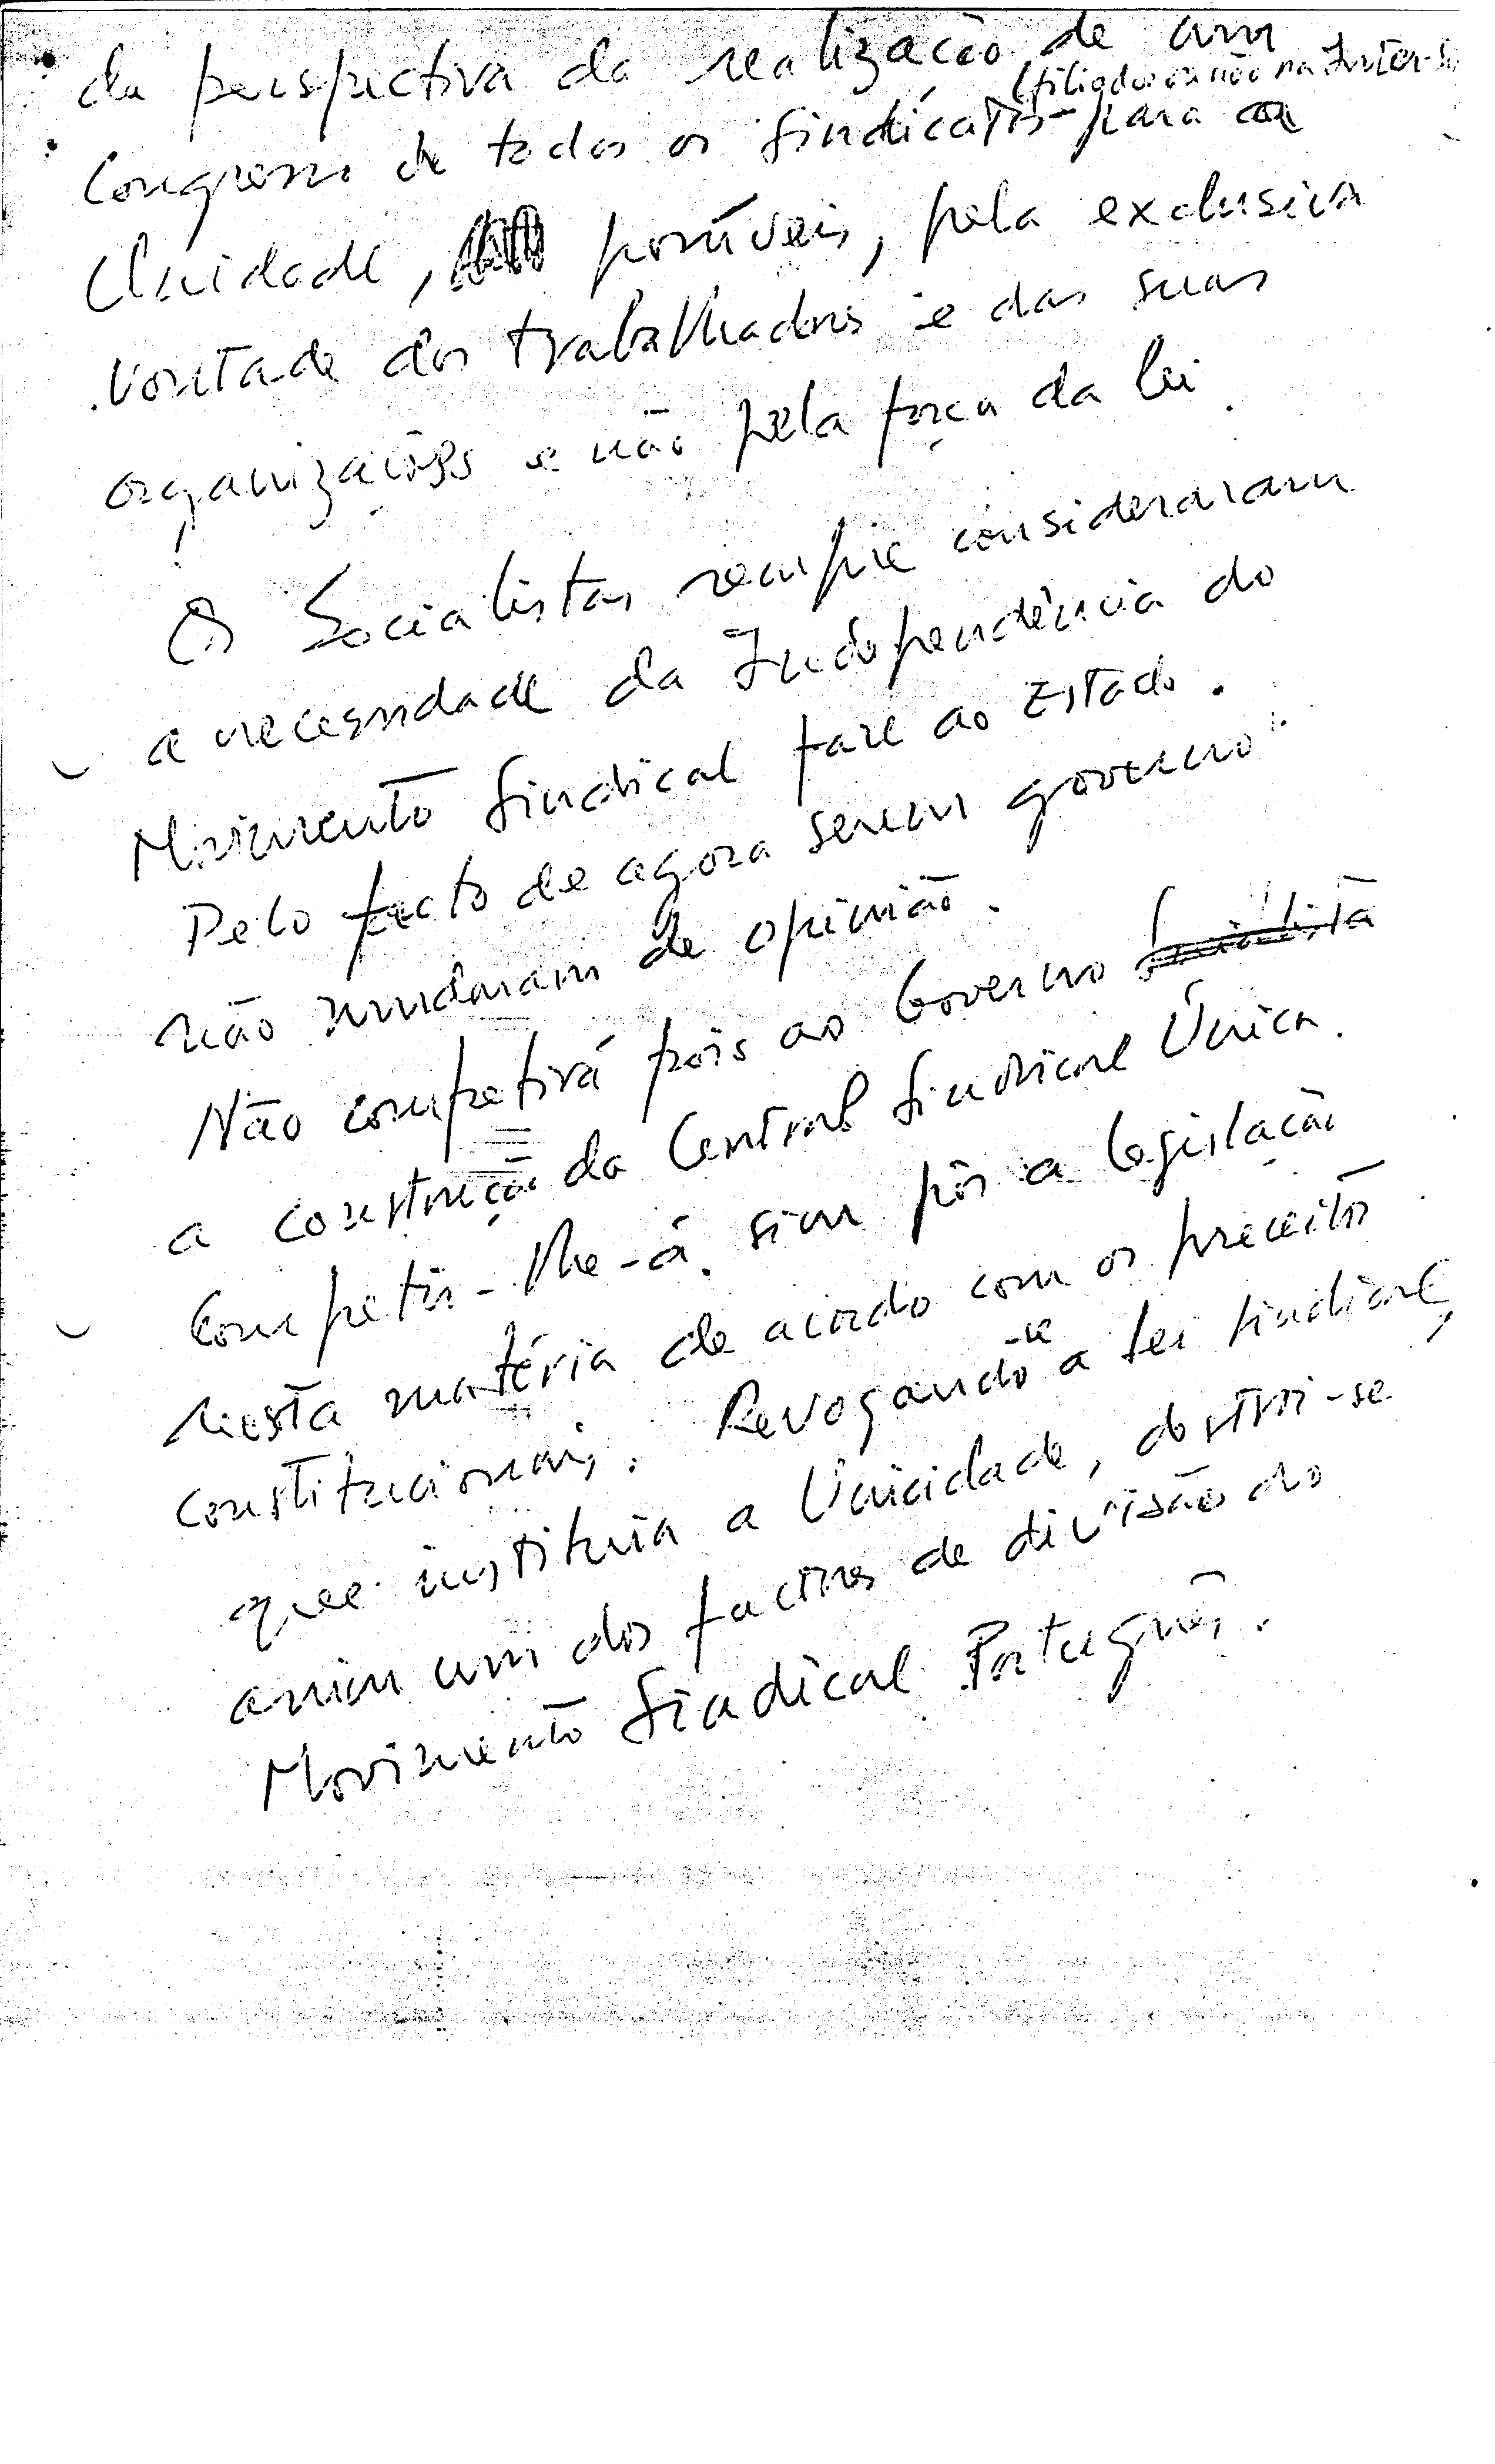 da perspectiva da realização de um
(filiados ou não na Inter-
Congresso de todos os sindicatos para a
Unidade, possíveis, pela exclusiva
vontade dos trabalhadores e das suas
organizações e não pela força da lei.
Os Socialistas sempre consideraram
a necessidade da Independência do
Movimento Sindical face ao Estado.
Pelo facto de agora serem governo
não mudaram de opinião.
Não competirá pois ao Governo Socialista
a construção da Central Sindical Única.
Competir-lhe-á sim pôr a legislação
nesta matéria de acordo com os preceitos
constitucionais. Revogando-se a lei sindical,
que instituia a Unicidade, destroi-se
assim um dos factores de divisão do
Movimento Sindical Português.